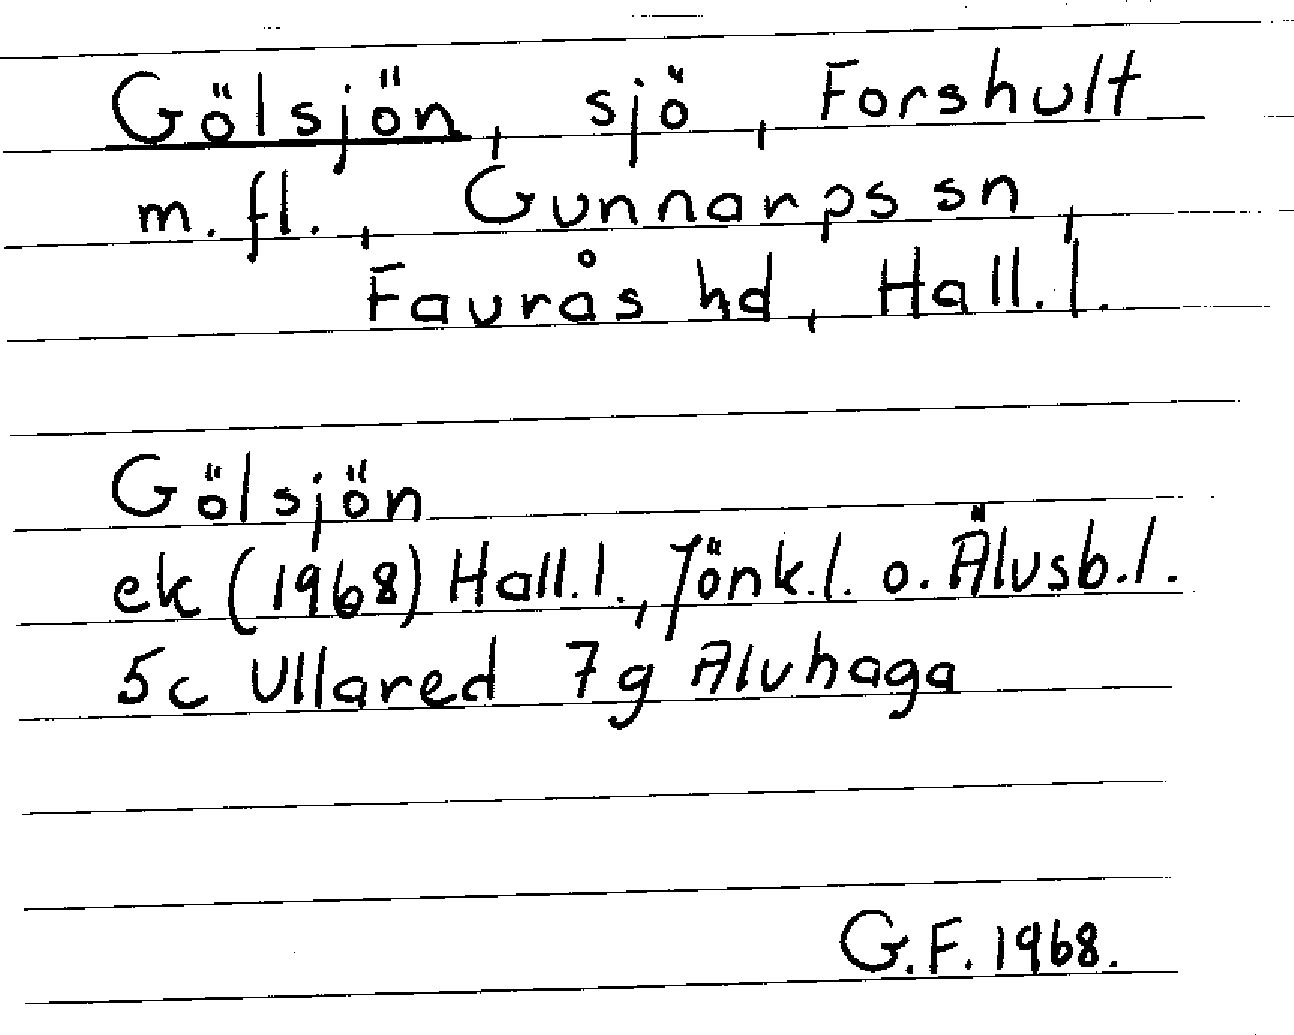 Gölsjön, sjö, Forshult
m. fl., Gunnarps sn,
Faurås hd, Hall. l.
Gölsjön
ek (1968) Hall. l., Jönk. l. o. Älvsb. l.
5c Ullared 7g Alvhaga
G. F. 1968.